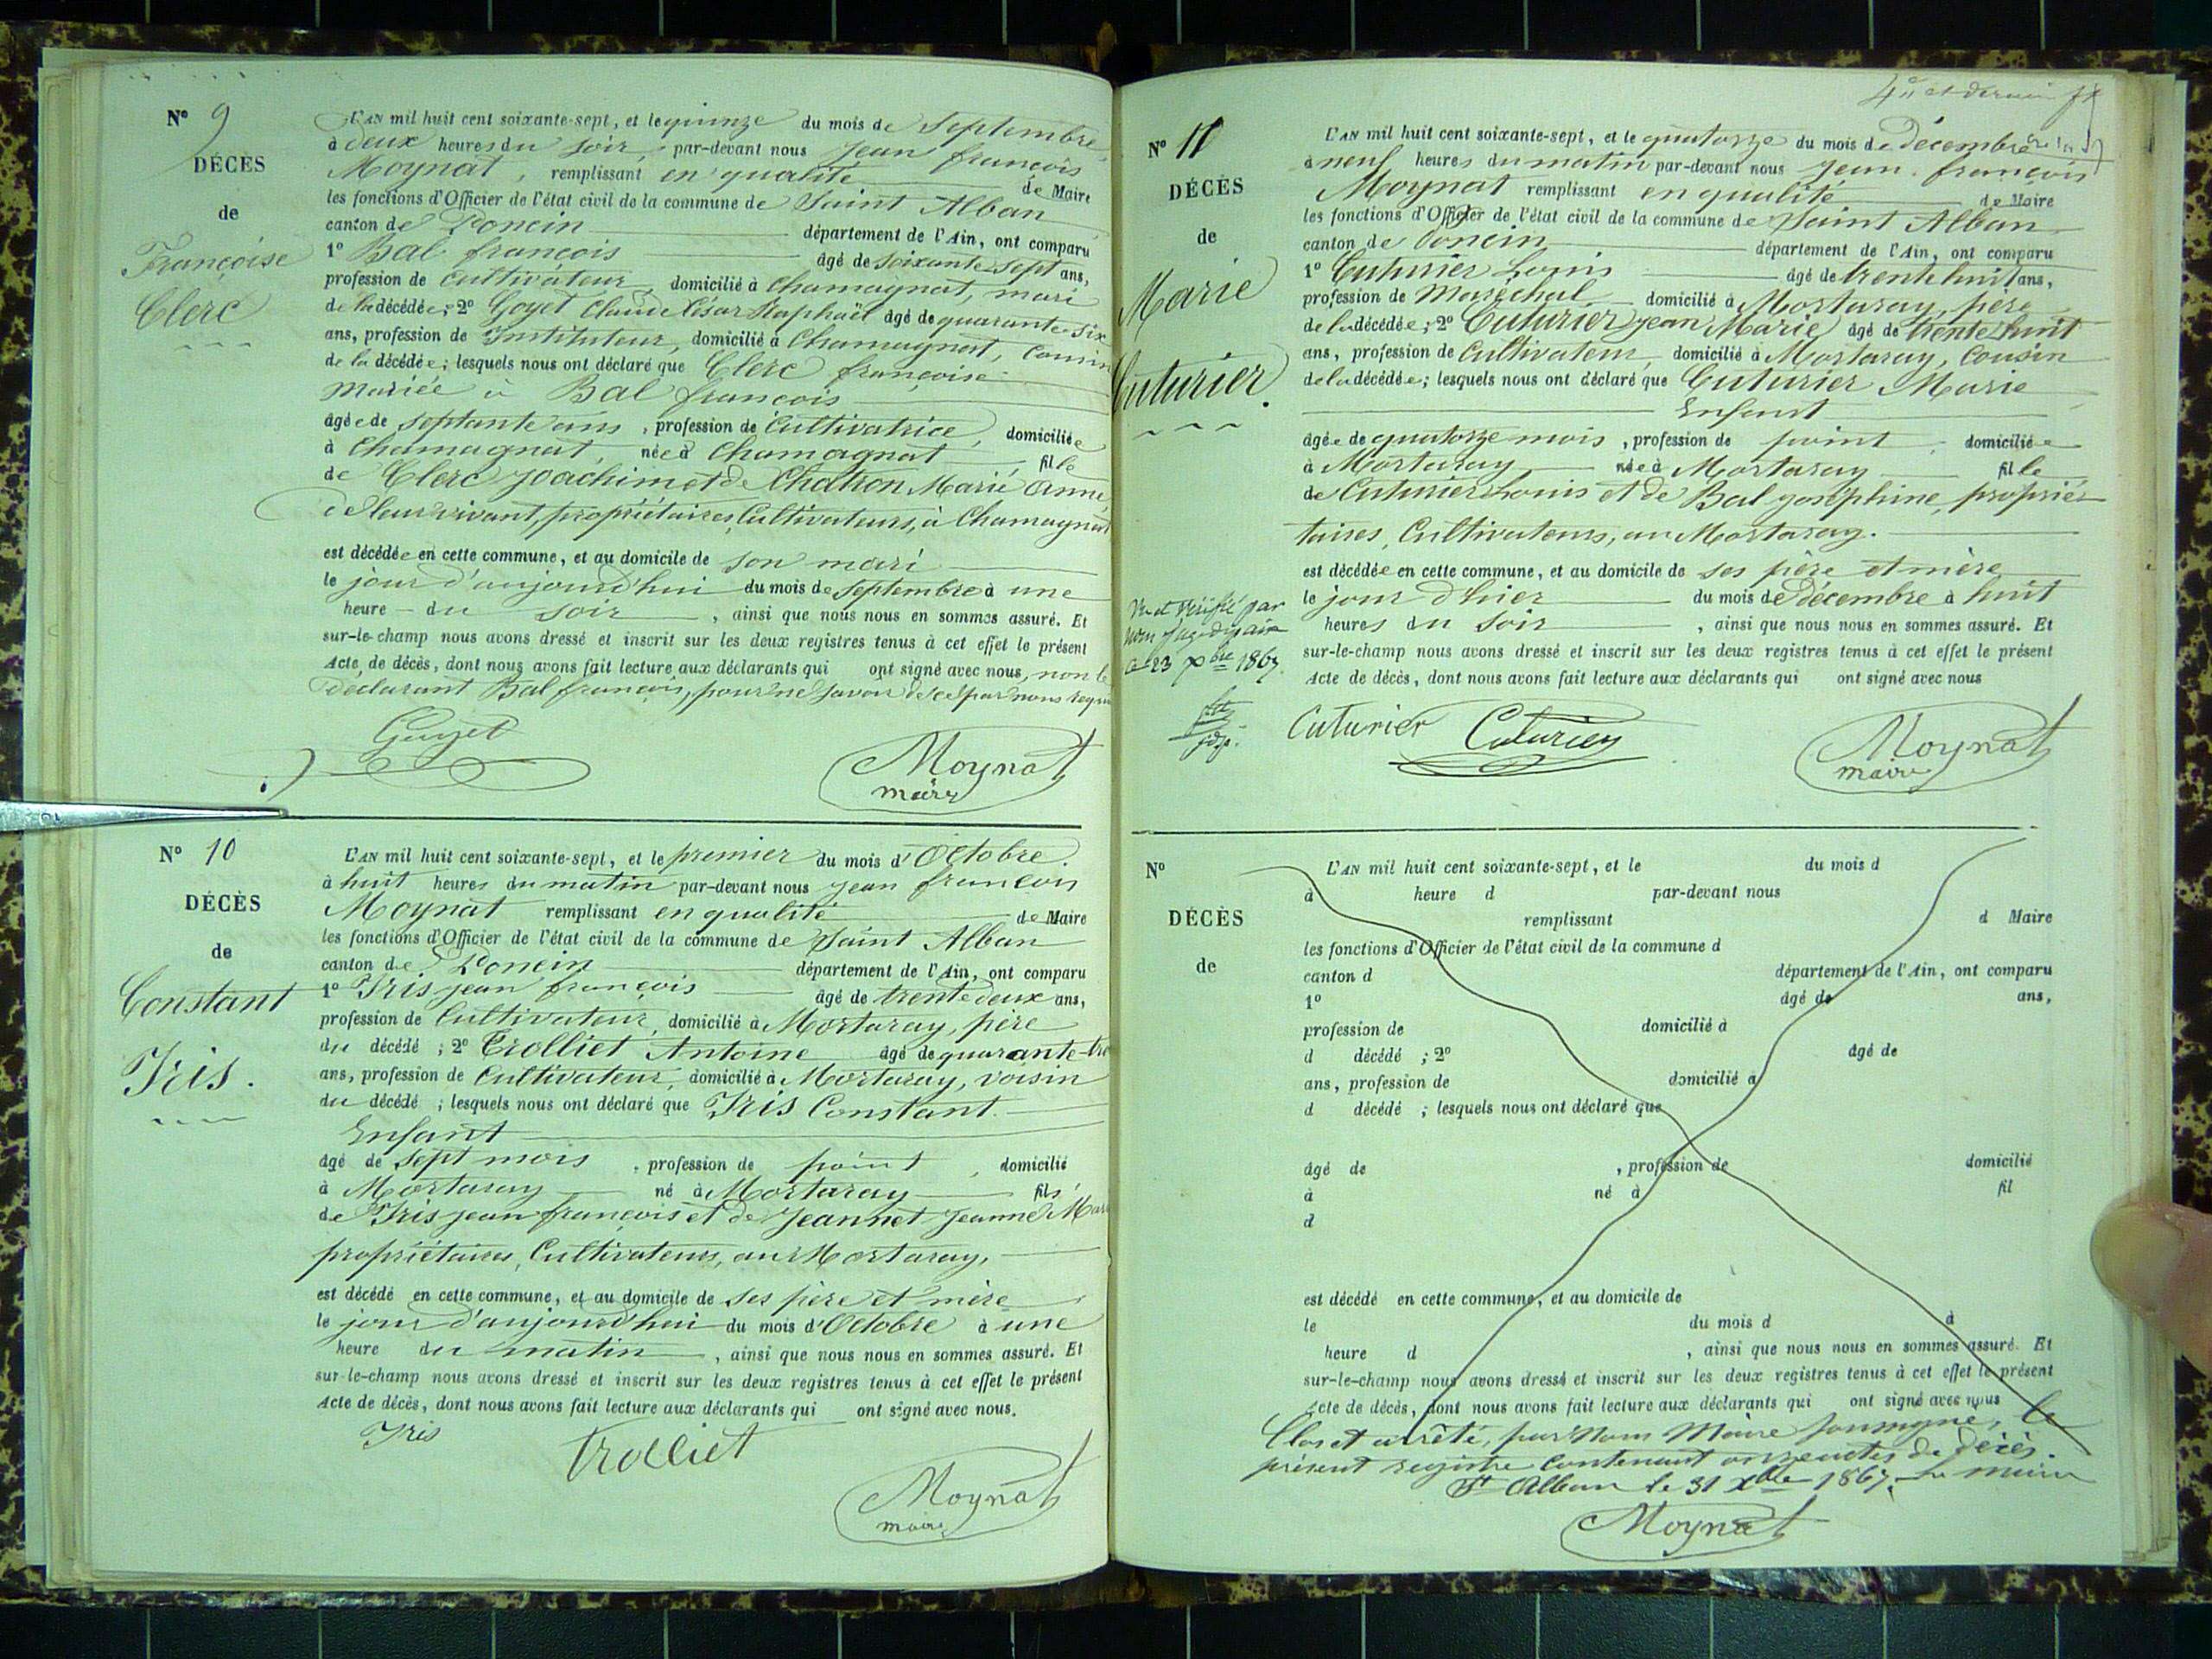 N° 9
DÉCÈS
de
Françoise
Clerc
L'AN mil huit cent soixante-sept, et le quinze du mois de Septembre
à deux heures du soir, par-devant nous Jean françois
Moynat, remplissant en qualité de Maire
les fonctions d'Officier de l'état civil de la commune de Saint Alban
canton de Poncin département de l'Ain, ont comparu
1° Bal françois âgé de soixante sept ans,
profession de Cultivateur, domicilié à Chamagnat, mari
de la décédée; 2° Goyet Claude César Raphaël âgé de quarante-six
ans, profession de Instituteur, domicilié à Chamagnat, Cousin
de la décédée; lesquels nous ont déclaré que Clerc françoise
mariée à Bal françois
âgée de septante ans, profession de Cultivatrice, domiciliée
à Chamagnat, née à Chamagnat fille
de Clerc Joachim et de Chatron Marie Anne
de leur vivant, propriétaires Cultivateurs, à Chamagnat
est décédée en cette commune, et au domicile de son mari
le jour d'aujourd'hui du mois de Septembre à une
heure du soir, ainsi que nous nous en sommes assuré. Et
sur-le-champ nous avons dressé et inscrit sur les deux registres tenus à cet effet le présent
Acte de décès, dont nous avons fait lecture aux déclarants qui ont signé avec nous, non le
déclarant Bal françois, pour ne savoir de ce par nous requis
Goyet
Moynat
maire
N° 10
DÉCÈS
de
Constant
Iris.
L'AN mil huit cent soixante-sept, et le premier du mois d'Octobre.
à huit heures du matin par-devant nous Jean françois
Moynat remplissant en qualité de Maire
les fonctions d'Officier de l'état civil de la commune de Saint Alban
canton de Poncin département de l'Ain, ont comparu
1° Iris Jean françois âgé de trente deux ans,
profession de Cultivateur, domicilié à Mortaray, père
du décédé; 2° Trolliet Antoine âgé de quarante-
ans, profession de Cultivateur, domicilié à Mortaray, voisin
du décédé; lesquels nous ont déclaré que Iris Constant.
Enfant
âgé de sept mois, profession de point, domicilié
à Mortaray né à Mortaray fils
de Iris Jean françois et de Jeannet Jeanne
propriétaires, Cultivateurs, au Mortaray,
est décédé en cette commune, et au domicile de ses père et mère
le jour d'aujourd'hui du mois d'Octobre à une
heure du matin, ainsi que nous nous en sommes assuré. Et
sur-le-champ nous avons dressé et inscrit sur les deux registres tenus à cet effet le présent
Acte de décès, dont nous avons fait lecture aux déclarants qui ont signé avec nous.
Iris
Trolliet
Moynat
maire
4e et dernier
N° 11
DÉCÈS
de
Marie
Cuturier.
L'AN mil huit cent soixante-sept, et le quatorze du mois de Décembre
à neuf heures du matin par-devant nous Jean françois
Moynat remplissant en qualité de Maire
les fonctions d'Officier de l'état civil de la commune de Saint Alban
canton de Poncin département de l'Ain, ont comparu
1° Cuturier Louis âgé de trente huit ans,
profession de Maréchal domicilié à Mortaray, père
de la décédée; 2° Cuturier Jean Marie âgé de trente huit
ans, profession de Cultivateur, domicilié à Mortaray, Cousin
de la décédée; lesquels nous ont déclaré que Cuturier Marie
Enfant
âgée de quatorze mois, profession de point, domiciliée
à Mortaray née à Mortaray fille
de Cuturier Louis et de Bal Joséphine, proprié-
taires, Cultivateurs, au Mortaray.
est décédée en cette commune, et au domicile de ses père et mère
le jour d'hier du mois de Décembre à huit
heures du soir, ainsi que nous nous en sommes assuré. Et
sur-le-champ nous avons dressé et inscrit sur les deux registres tenus à cet effet le présent
Acte de décès, dont nous avons fait lecture aux déclarants qui ont signé avec nous
Vu et vérifié par
nous juge de paix
Ce 23 Xbre 1867.
Cuturier Cuturier
Moynat
maire
N°
DÉCÈS
de
L'AN mil huit cent soixante-sept, et le du mois d
à heure d par-devant nous
remplissant d Maire
les fonctions d'Officier de l'état civil de la commune d
canton d département de l'Ain, ont comparu
1° âgé de ans,
profession de domicilié à
d décédé ; 2° âgé de
ans, profession de domicilié à
d décédé ; lesquels nous ont déclaré que
âgé de , profession de domicilié
à né à fil
d
est décédé en cette commune, et au domicile de
le du mois d à
heure d , ainsi que nous nous en sommes assuré. Et
sur-le-champ nous avons dressé et inscrit sur les deux registres tenus à cet effet le présent
Acte de décès, dont nous avons fait lecture aux déclarants qui ont signé avec nous
Clos et arrêté, par Nous Maire soussigné, le
présent registre contenant onze actes de décès.
St Alban le 31 Xbre 1867. Le maire
Moynat